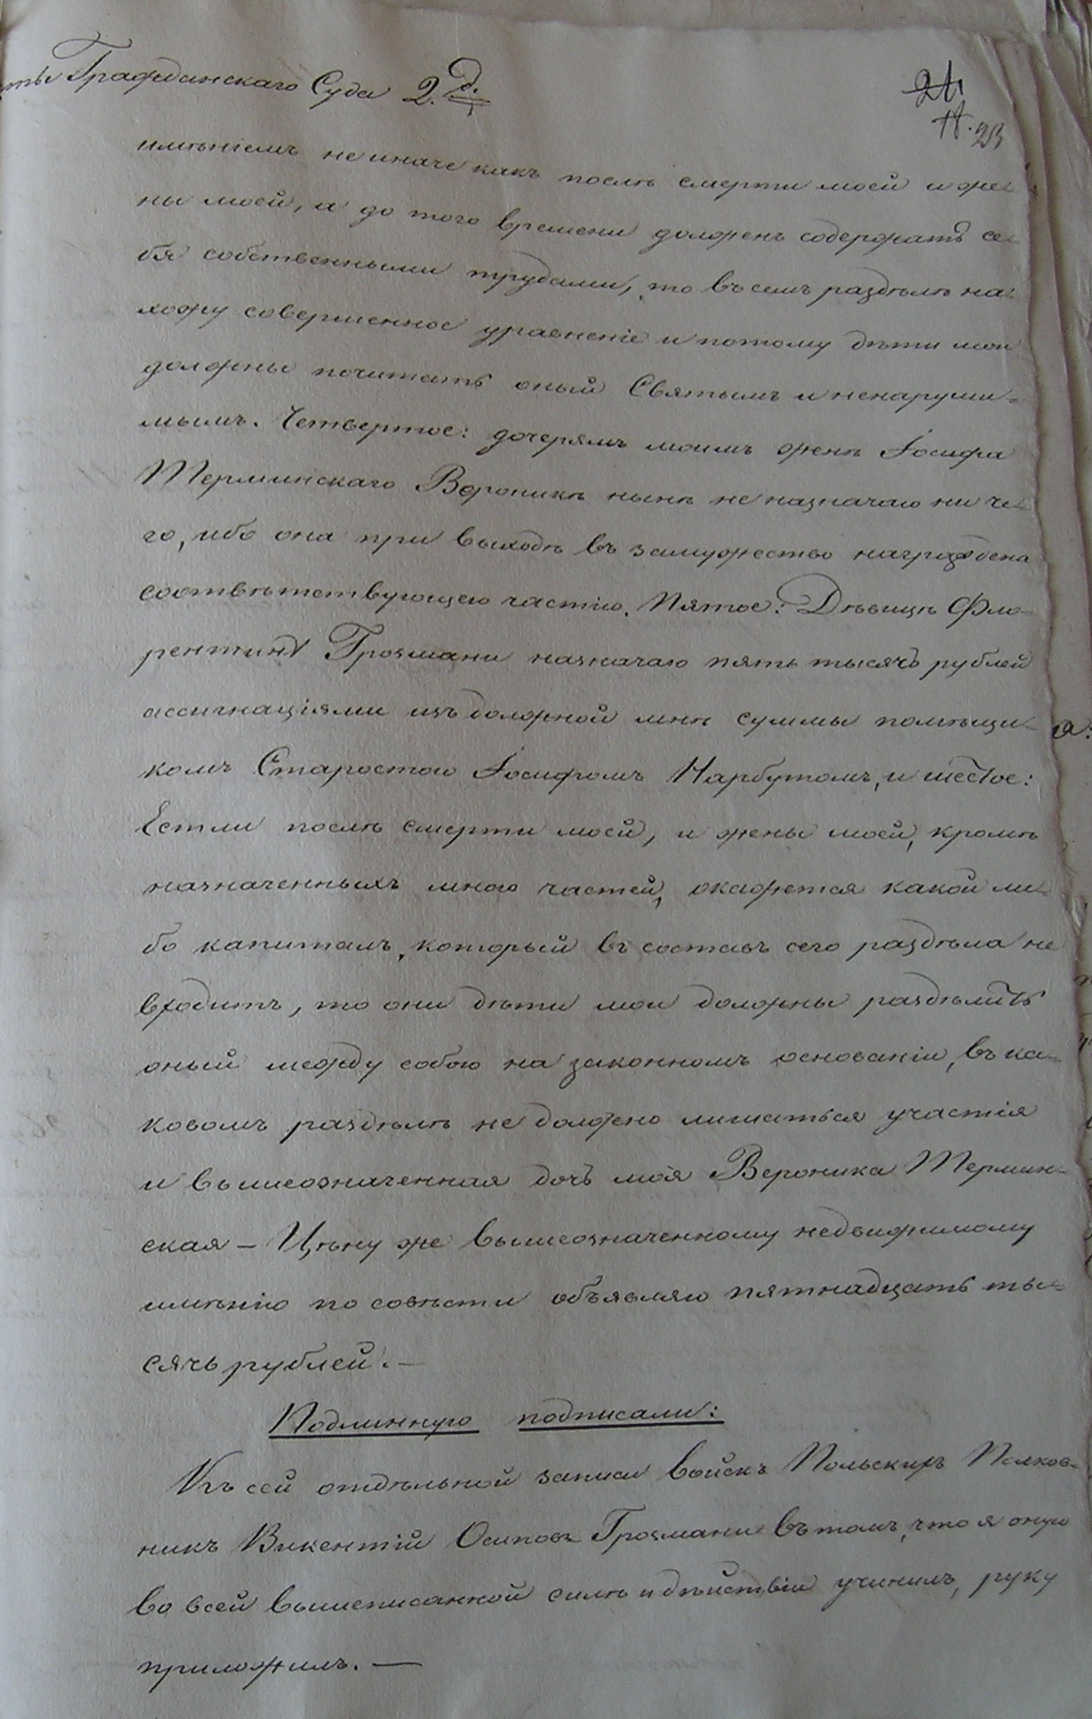 Гражданскаго Суда 2. д.
24
17. 23
имѣніемъ не иначе какъ послѣ смерти моей и же-
ны моей, а до того времени долженъ содержать се-
бя собственными трудами, то въ семъ раздѣлѣ на-
хожу совершенное уравненіе и потому дѣти мои
должны почитать оный Святымъ и ненаруши-
мымъ. Четвертое: дочерямъ моимъ женѣ Іосифа
Терминскаго Вероникѣ нынѣ не назначаю ни че-
го, ибо она при выходѣ въ замужество награждена
соотвѣтствующею частію. Пятое: Дѣвицѣ Фло-
рентинѣ Грозмани назначаю пять тысячь рублей
ассигнаціями изъ должной мнѣ суммы помѣщи-
комъ Старостою Іосифомъ Нарбутомъ, и шестое:
Естли послѣ смерти моей, и жены моей, кромѣ
назначенныхъ мною частей, окажется какой ли-
бо капиталъ, который въ составъ сего раздѣла не
входитъ, то они дѣти мои должны раздѣлить
оный между собою на законномъ основаніи, въ ка-
ковомъ раздѣлѣ не должно лишаться участія
и вышеозначенная дочь моя Вероника Термин-
ская – Цѣну же вышеозначенному недвижимому
имѣнію по совѣсти объявляю пятнадцать ты-
сячь рублей. –
Подлинную подписали:
Къ сей отдѣльной записи войскъ Польскихъ Полков-
никъ Викентій Осиповъ Грозмани въ томъ, что я оную
во всей вышеписанной силѣ и дѣйствіи учинилъ, руку
приложилъ. –